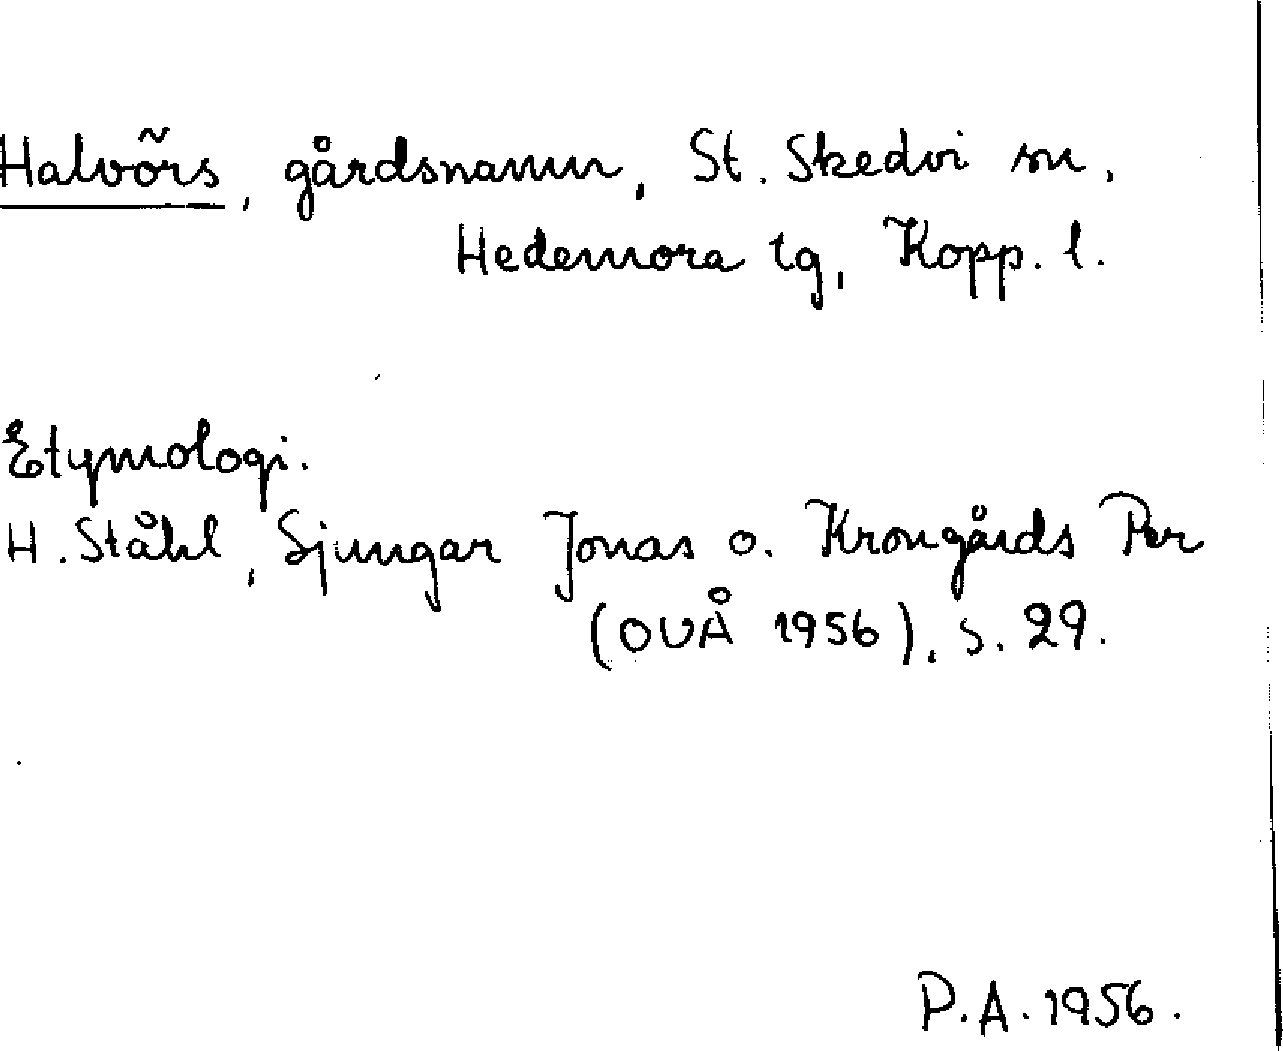 Halvõrs, gårdsnamn, St. Skedvi sn,
Hedemora tg, Kopp. l.
Etymologi.
H. Ståhl, Sjungar Jonas o. Krongårds Per
(OUÅ 1956), s. 29.
P.A. 1956.